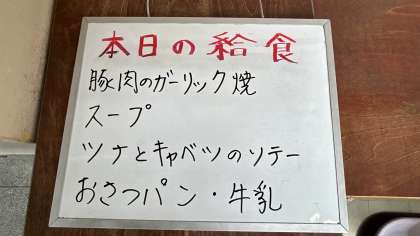 本日の給食
豚肉のガーリック焼
スープ
ツナとキャベツのソテー
おさつパン・牛乳